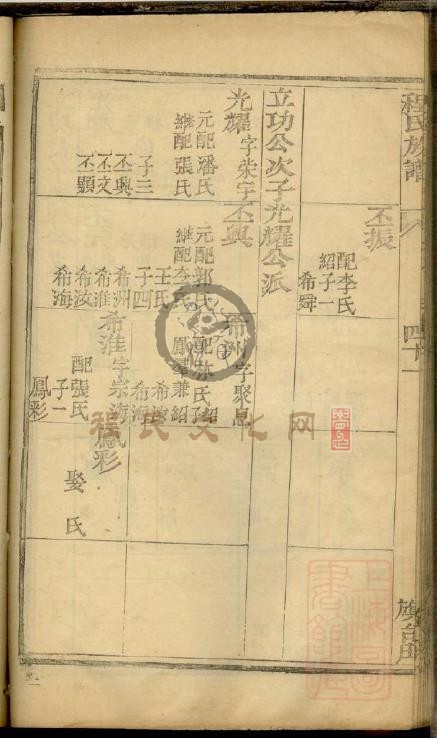 程氏族譜
四十一
丕振
配李氏
紹子一
希舜
立功公次子光耀公派
光耀字荣宇
元配潘氏
継配張氏
子三
丕興
丕文
丕顯
丕興
元配郭氏
継配李氏
王氏
子四
希州
希淮
希汝
希海
希州字聚息
配陈氏
紹子
鳳
兼紹
希海
希淮字宗海
配張氏
子一
鳳彩
鳳彩
娶 氏
程氏文化网